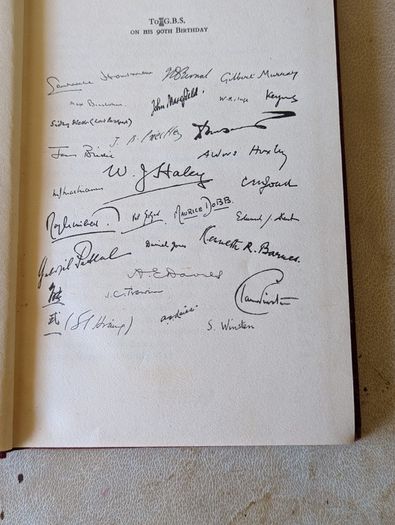 To G.B.S.
ON HIS 90TH BIRTHDAY
Laurence Housman J D Bernal Gilbert Murray
Max Beerbohm John Masefield W. R. Inge Keynes
Sidney Webb (Lord Passfield) J. B. Priestley Dunsany
James Bridie Aldous Huxley
W. J Haley
Maurice DOBB
Gabriel Pascal Daniel Jones Kenneth R. Barnes
A. E. Davies
J. C. Trewin
(S I Hsiung) S. Winsten